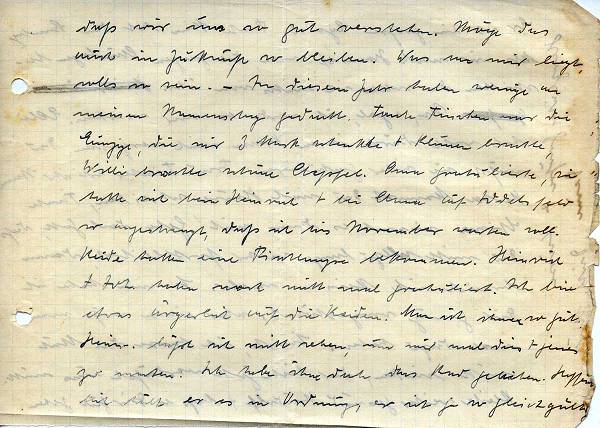 daß wir uns so gut verstehen. Möge das
auch in Zukunft so bleiben. Was an mir liegt,
solls so sein. – In diesem Jahr haben wenige an
meinen Namenstag gedacht. Tante war die
Einzige, die mir 3 Mark schenkte + Blumen brachte,
Willi brachte schöne Aepfel. Anna gratulierte, sie
hatte sich bei Heinrich + bei Anna auf
so angestrengt, daß sie bis November warten soll.
Beide hatten eine bekommen. Heinrich
+ haben noch nicht mal gratuliert. Ich bin
etwas ärgerlich auf die Beiden. Man ist ihnen so gut.
Hein. läßt sich nicht sehen, um mir mal dies + jenes
zu machen. Ich habe ihm doch das Rad geliehen. Hoffent-
lich hält er es in Ordnung, er ist ja so gleichgült